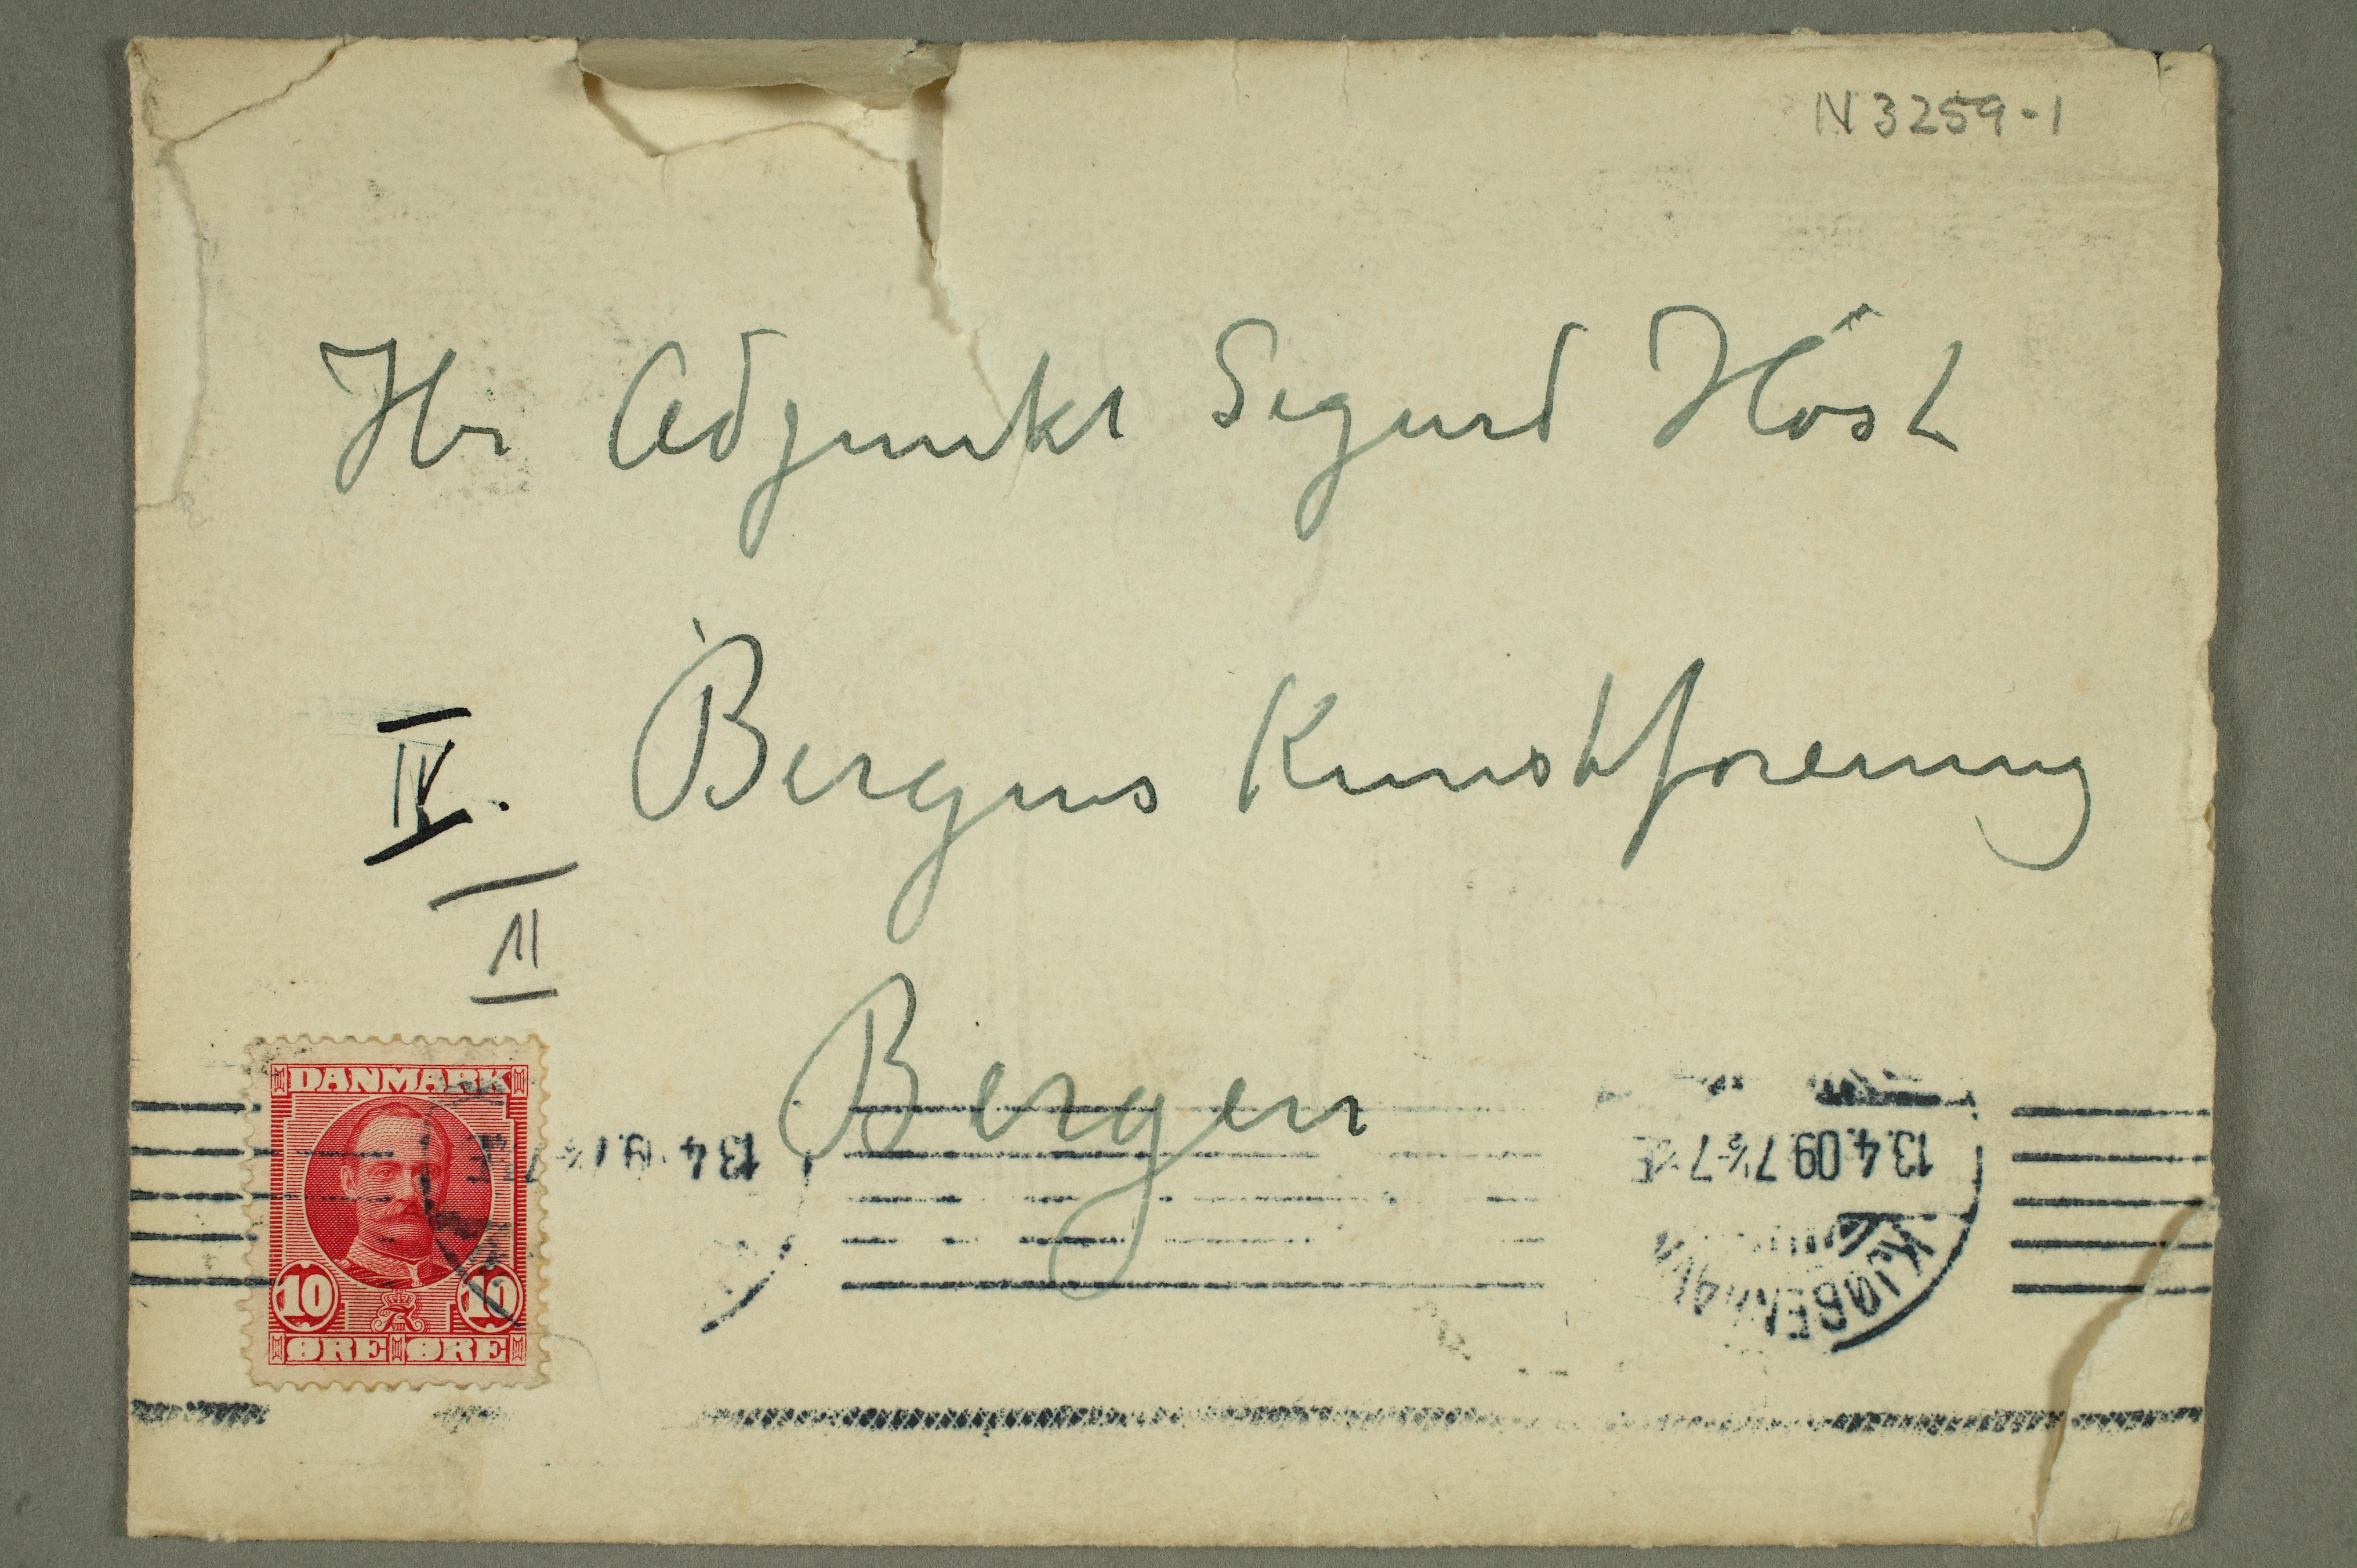 N 3259-1
Hr Adjunkt Sigurd Höst
Bergens Kunstforening
IV.
II
Bergen
DANMARK
10 10
ØRE ØRE
13.4
13.4.09 7½-7 E
KJØBENHAVN